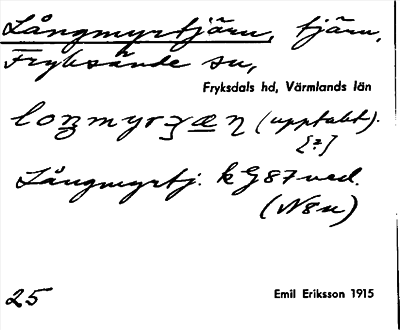 Långmyrtjärn, tjärn,
Fryksände sn,
Fryksdals hd, Värmlands län
(upptakt).
[?]
Långmyrtj. k G87 ned.
(N8n)
25
Emil Eriksson 1915